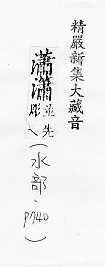 精嚴新集大藏音
瀟瀟並先彫〵(水部‧p740)